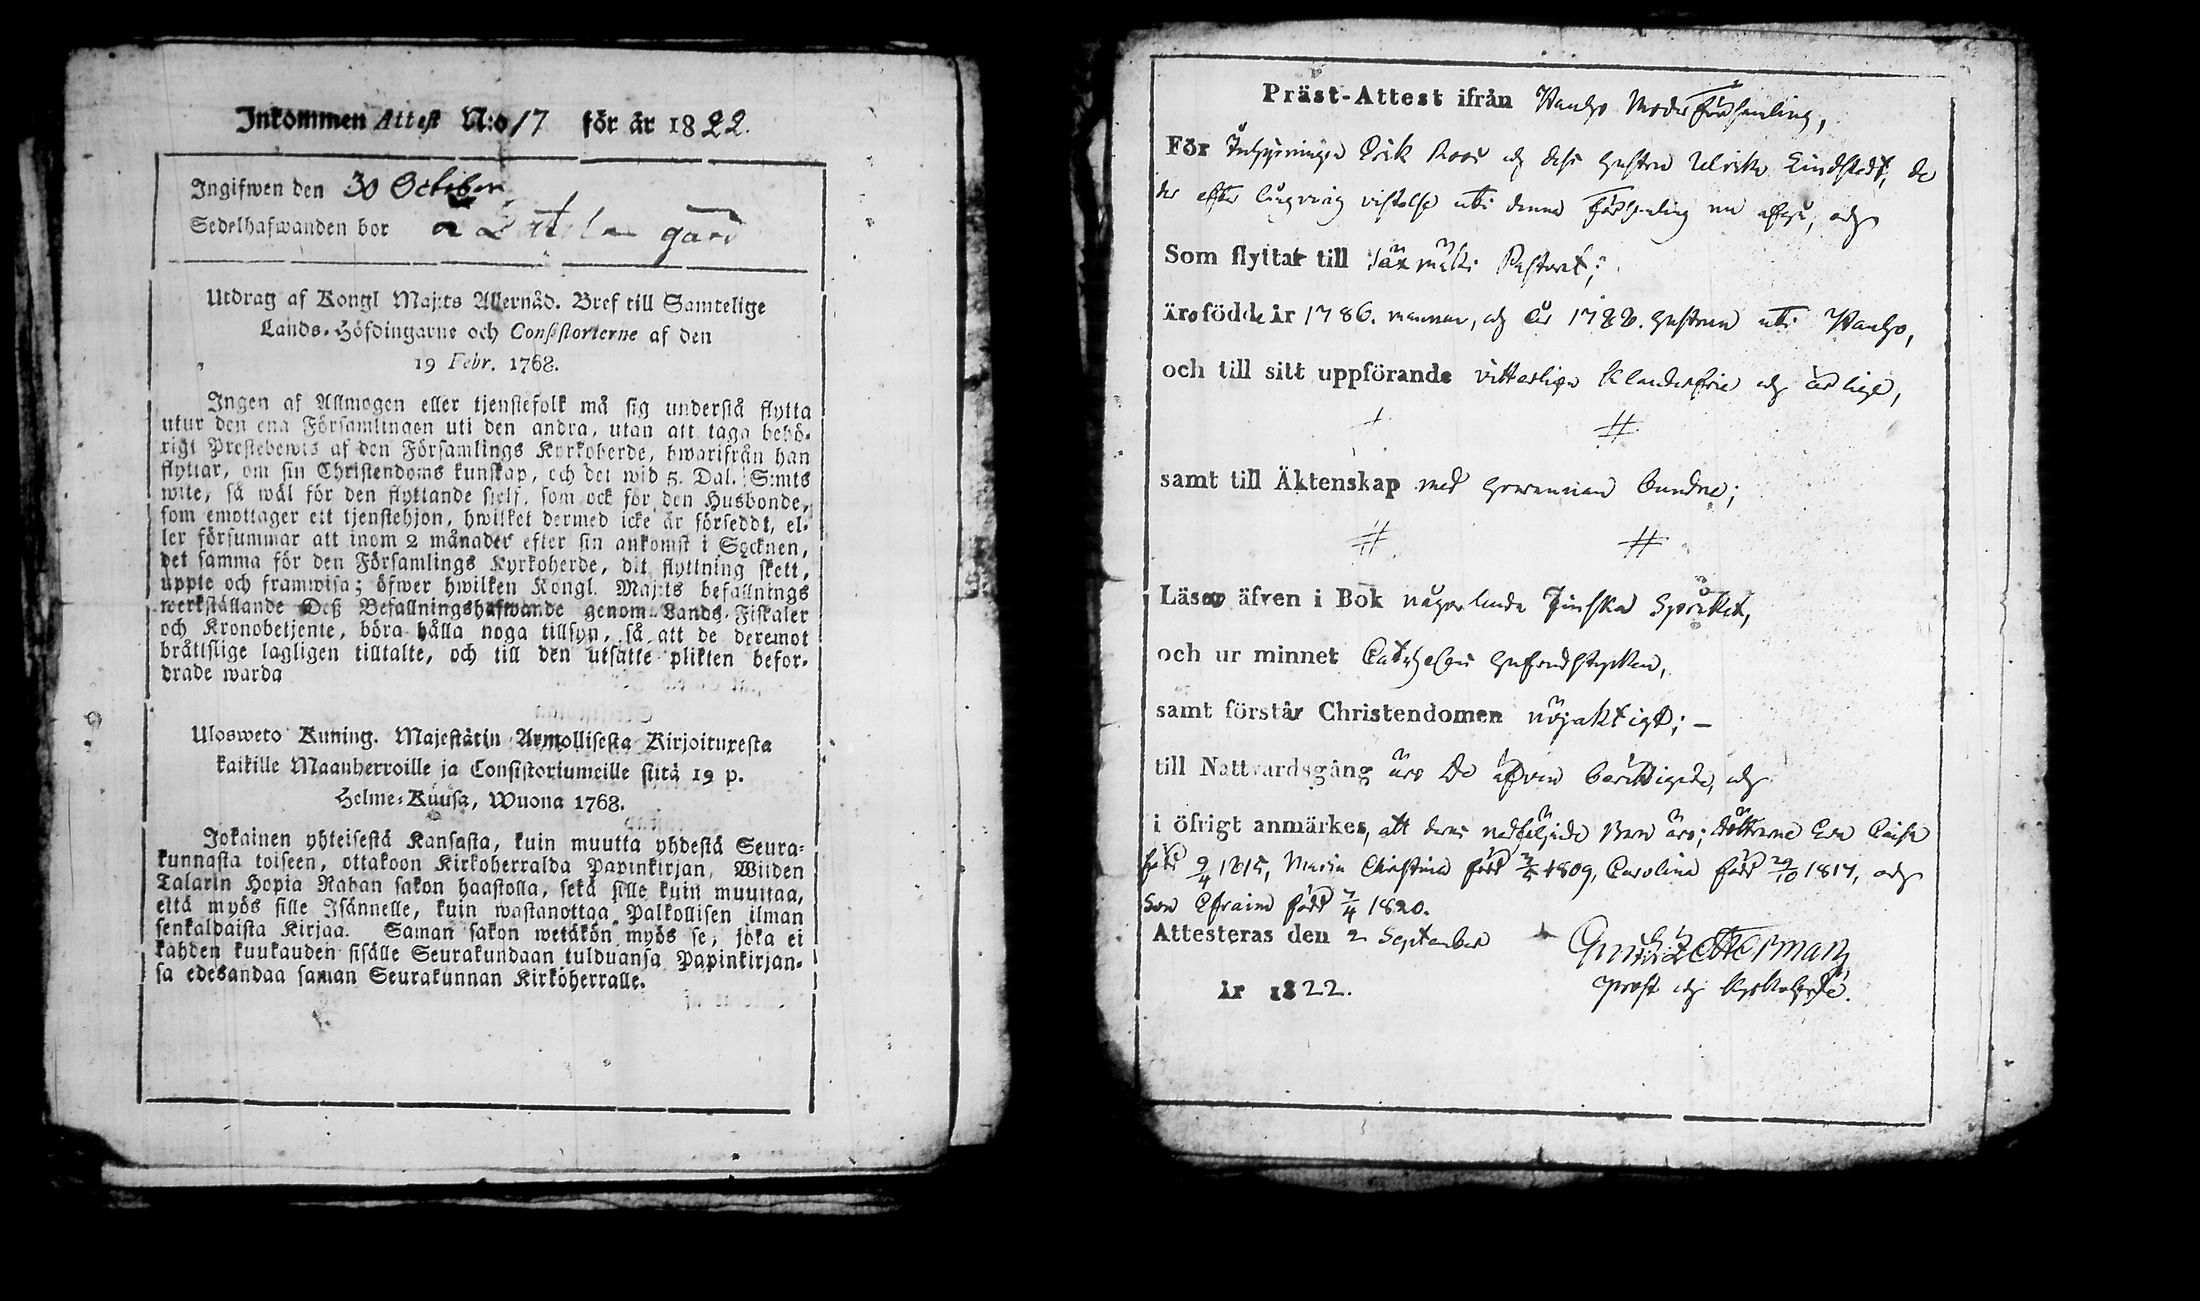 Inkommen Attest N:o 17 för år 1822.
Ingifwen den 30 October
Sedelhafwanden bor å gård
Utdrag af Kongl Maj:ts Allernåd. Bref till Samtelige
Lands-Höfdingarne och Consistorierne af den
19 Febr. 1768.
Ingen af Allmogen eller tjenstefolk må sig understå flytta
utur den ena Församlingen uti den andra, utan att taga behö-
rigt Prestebewis af den Församlings Kyrkoherde, hwarifrån han
flyttar, om sin Christendoms kunskap, och det wid 5. Dal. S:mts
wite, så wäl för den flyttande sielf, som ock för den Husbonde,
som emottager ett tjenstehjon, hwilket dermed icke är försedt, el-
ler försummar att inom 2 månader efter sin ankomst i Socknen,
det samma för den Församlings Kyrkoherde, dit flyttning skett,
uppte och framwisa; öfwer hwilken Kongl. Maj:ts befallnings
werkställande Deß Befallningshafwande genom Lands-Fiskaler
och Kronobetjente, böra hålla noga tillsyn, så att de deremot
bråttslige lagligen tilltalte, och till den utsatte plikten befor-
drade warda
Ulosweto Kuning. Majestätin Armollisesta Kirjoituxesta
kaikille Maanherroille ja Consistoriumeille siitä 19 p.
Helme-Kuusa, Wuona 1768.
Jokainen yhteisestä Kansasta, kuin muutta yhdestä Seura-
kunnasta toiseen, ottakoon Kirkoherralda Papinkirjan, Wiiden
Talarin Hopia Rahan sakon haastolla, sekä sille kuin muuttaa,
että myös sille Isännelle, kuin wastanottaa Palkollisen ilman
senkaldaista Kirjaa. Saman sakon wetäkön myös se, joka ei
kahden kuukauden sisälle Seurakundaan tulduansa Papinkirjan-
sa edesandaa saman Seurakunnan Kirkoherralle.
Präst-Attest ifrån Wånho Moder Församling,
För Inhysningen Erik Roos och dess hustru Ulrika Lindstedt, de
der efter långvarig vistelse uti denna Församling nu afflytt, och
Som flyttar till Säxmäki Pastorat;
äro födde år 1786. mannen, och år 1788. hustrun uti Wånho,
och till sitt uppförande vitterligen klanderfrie och ärlige,
samt till Äktenskap med hvarannan bundne;
Läser äfven i Bok någorlunda Finska Språket,
och ur minnet Catechesens hufvudstycken,
samt förstår Christendomen nöjaktigt; –
till Nattvardsgång äro De äfven berättigade, och
i öfrigt anmärkes, att deras nedföljande Barn äro; döttrarne Eva Caisa
född 9/4 1815, Maria Christina född 1809, Carolina född 29/10 1817, och
Son Efraim född 7/4 1820.
Attesteras den 2 September
år 1822.
Zetterman
Prost och Kyrkoherde.